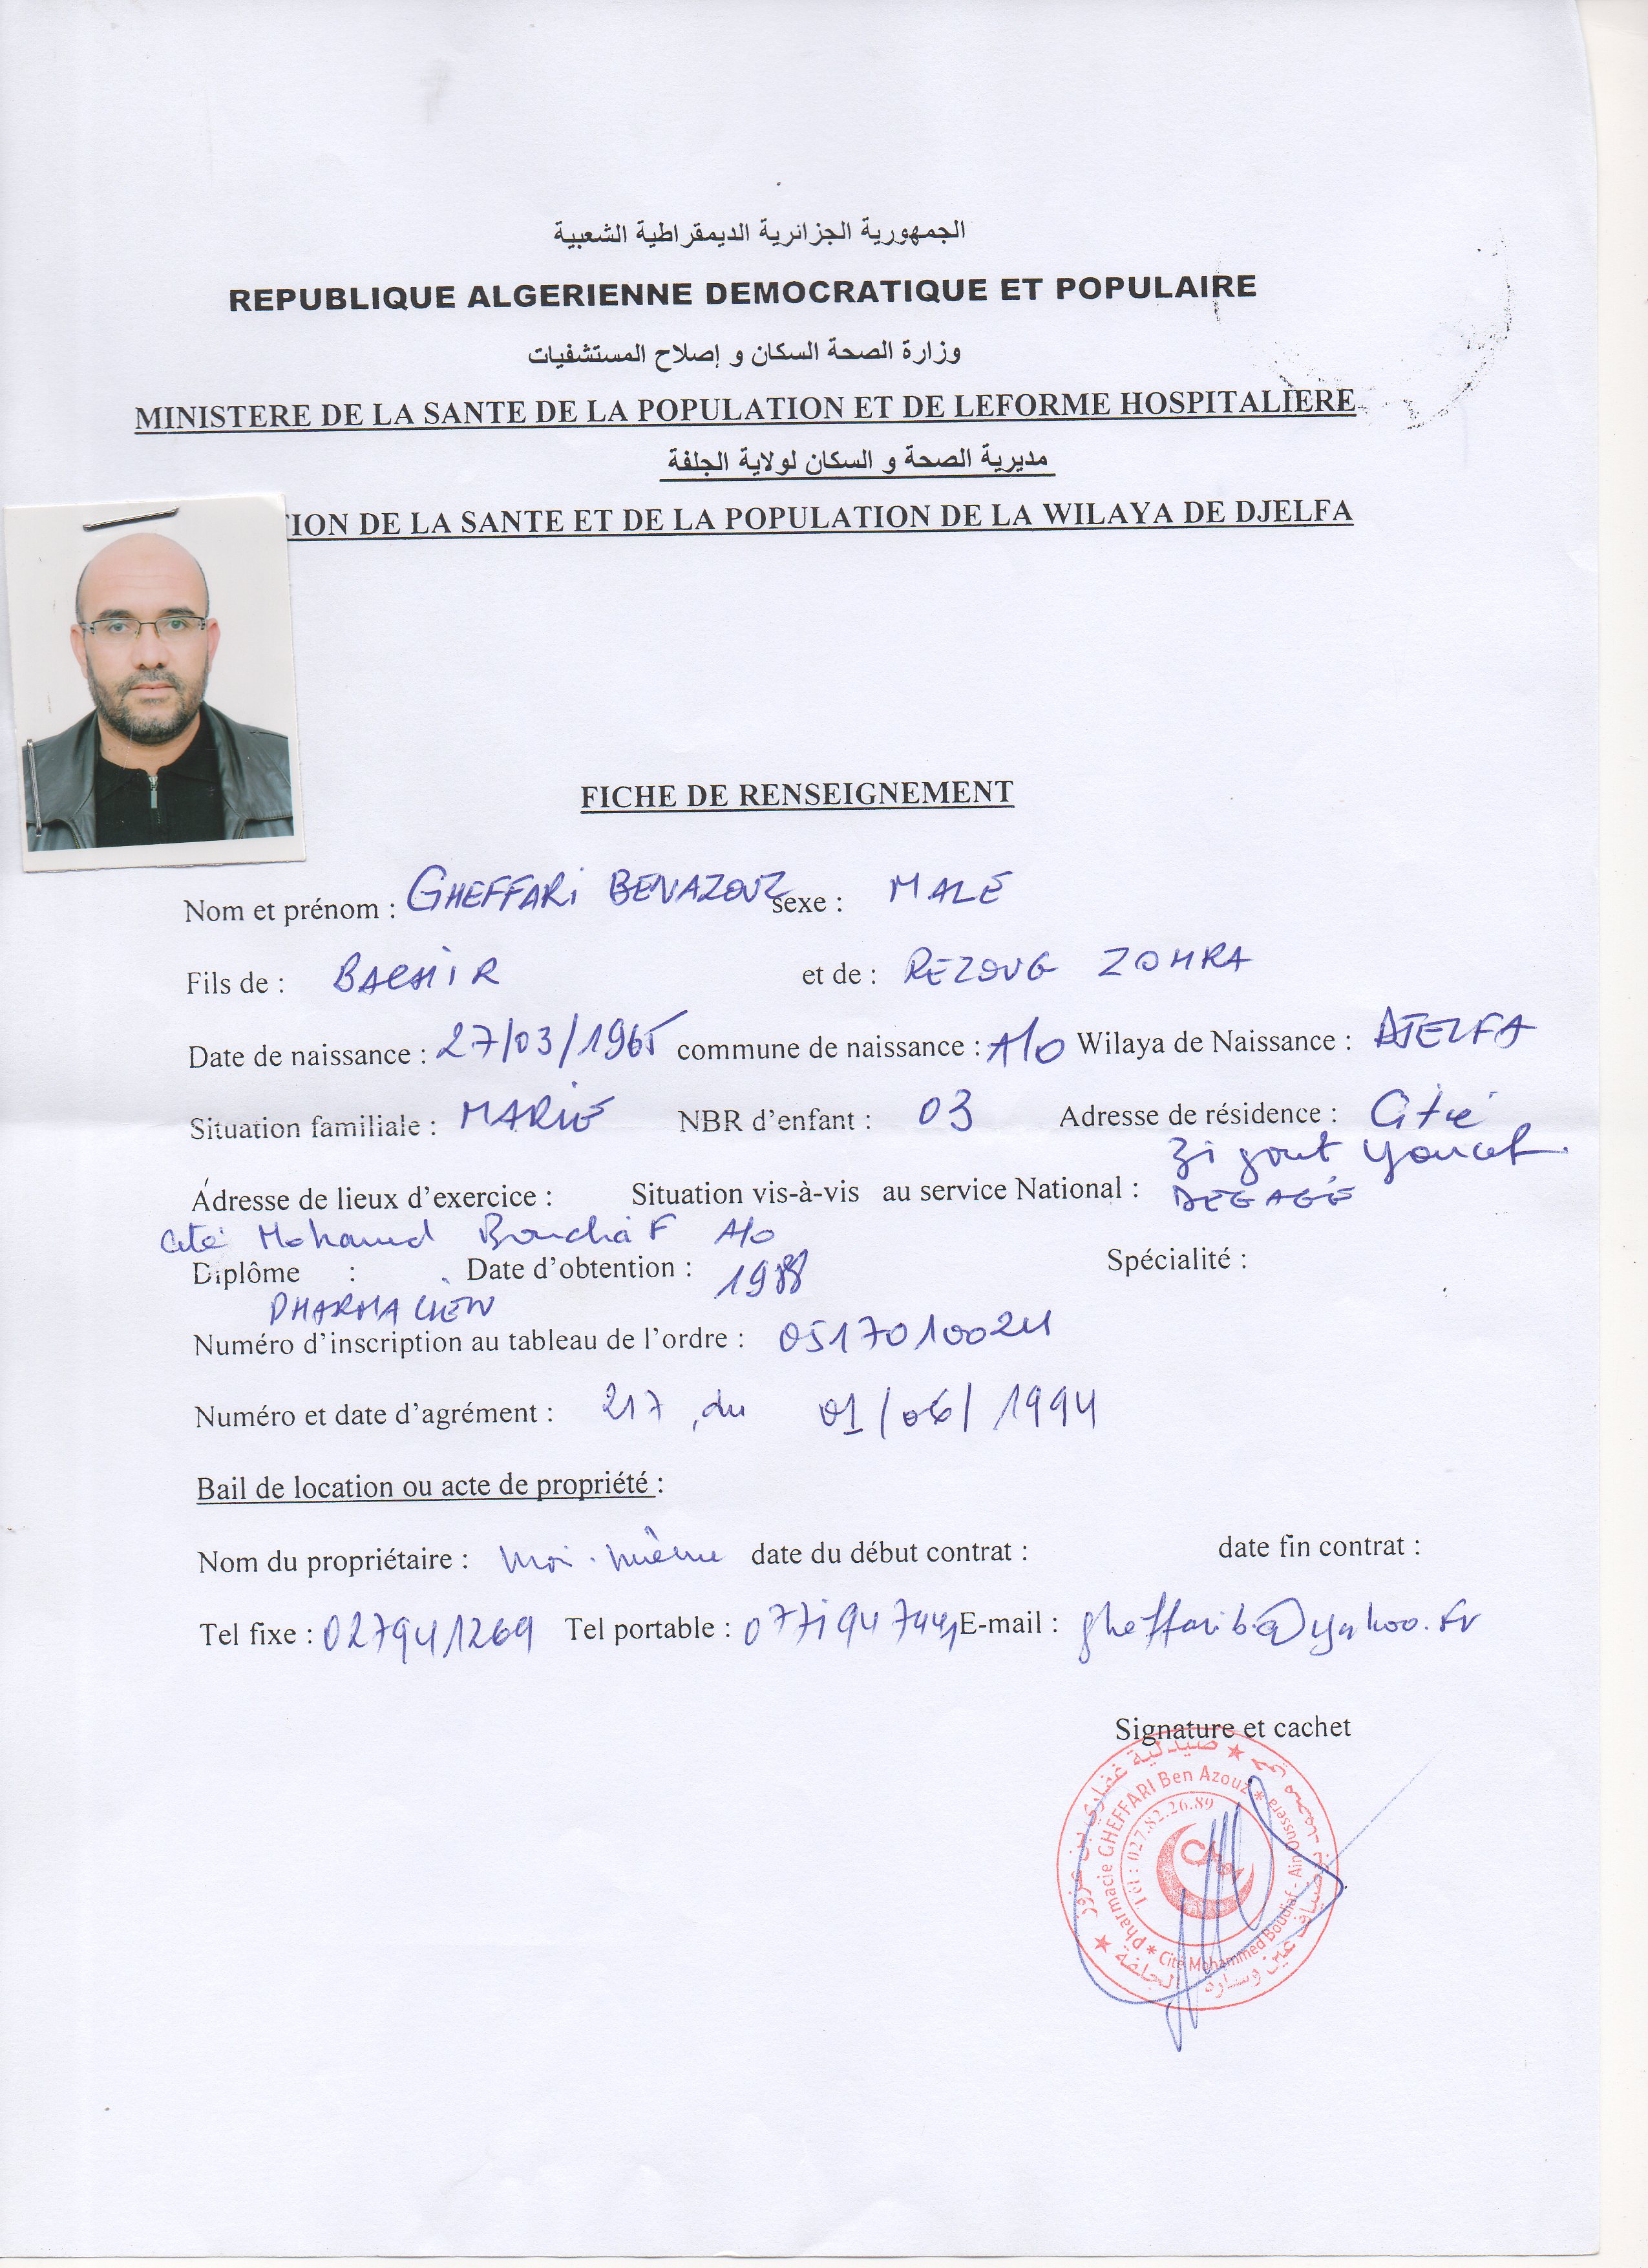 الجمهورية الجزائرية الديمقراطية الشعبية
REPUBLIQUE ALGERIENNE DEMOCRATIQUE ET POPULAIRE
وزارة الصحة السكان و إصلاح المستشفيات
MINISTERE DE LA SANTE DE LA POPULATION ET DE LEFORME HOSPITALIERE
مديرية الصحة و السكان لولاية الجلفة
TION DE LA SANTE ET DE LA POPULATION DE LA WILAYA DE DJELFA
FICHE DE RENSEIGNEMENT
Nom et prénom : GHEFFARi BENAZOUZ sexe : MALE
Fils de : BACHiR et de : REZOUG ZOHRA
Date de naissance : 27/03/1965 commune de naissance : A/O Wilaya de Naissance : DJELFA
Situation familiale : MARIÉ NBR d'enfant : 03 Adresse de résidence : Cité
Zi gout Youcef
Adresse de lieux d'exercice : Situation vis-à-vis au service National : DEGAGÉ
cité Mohamed Boudiaf A/O
Diplôme : Date d'obtention : 1988 Spécialité :
PHARMACIEN
Numéro d'inscription au tableau de l'ordre : 0517010024
Numéro et date d'agrément : 217 du 01/06/1994
Bail de location ou acte de propriété :
Nom du propriétaire : moi-même date du début contrat : date fin contrat :
Tel fixe : 027941269 Tel portable : 0771947441 E-mail : gheffari.b@yahoo.fr
Signature et cachet
صيدلية غفاري بن عزوز
عين وسارة الجلفة
pharmacie GHEFFARI Ben Azouz
Cité Mohammed Boudiaf - Ain Oussera
Tél : 027.82.26.89